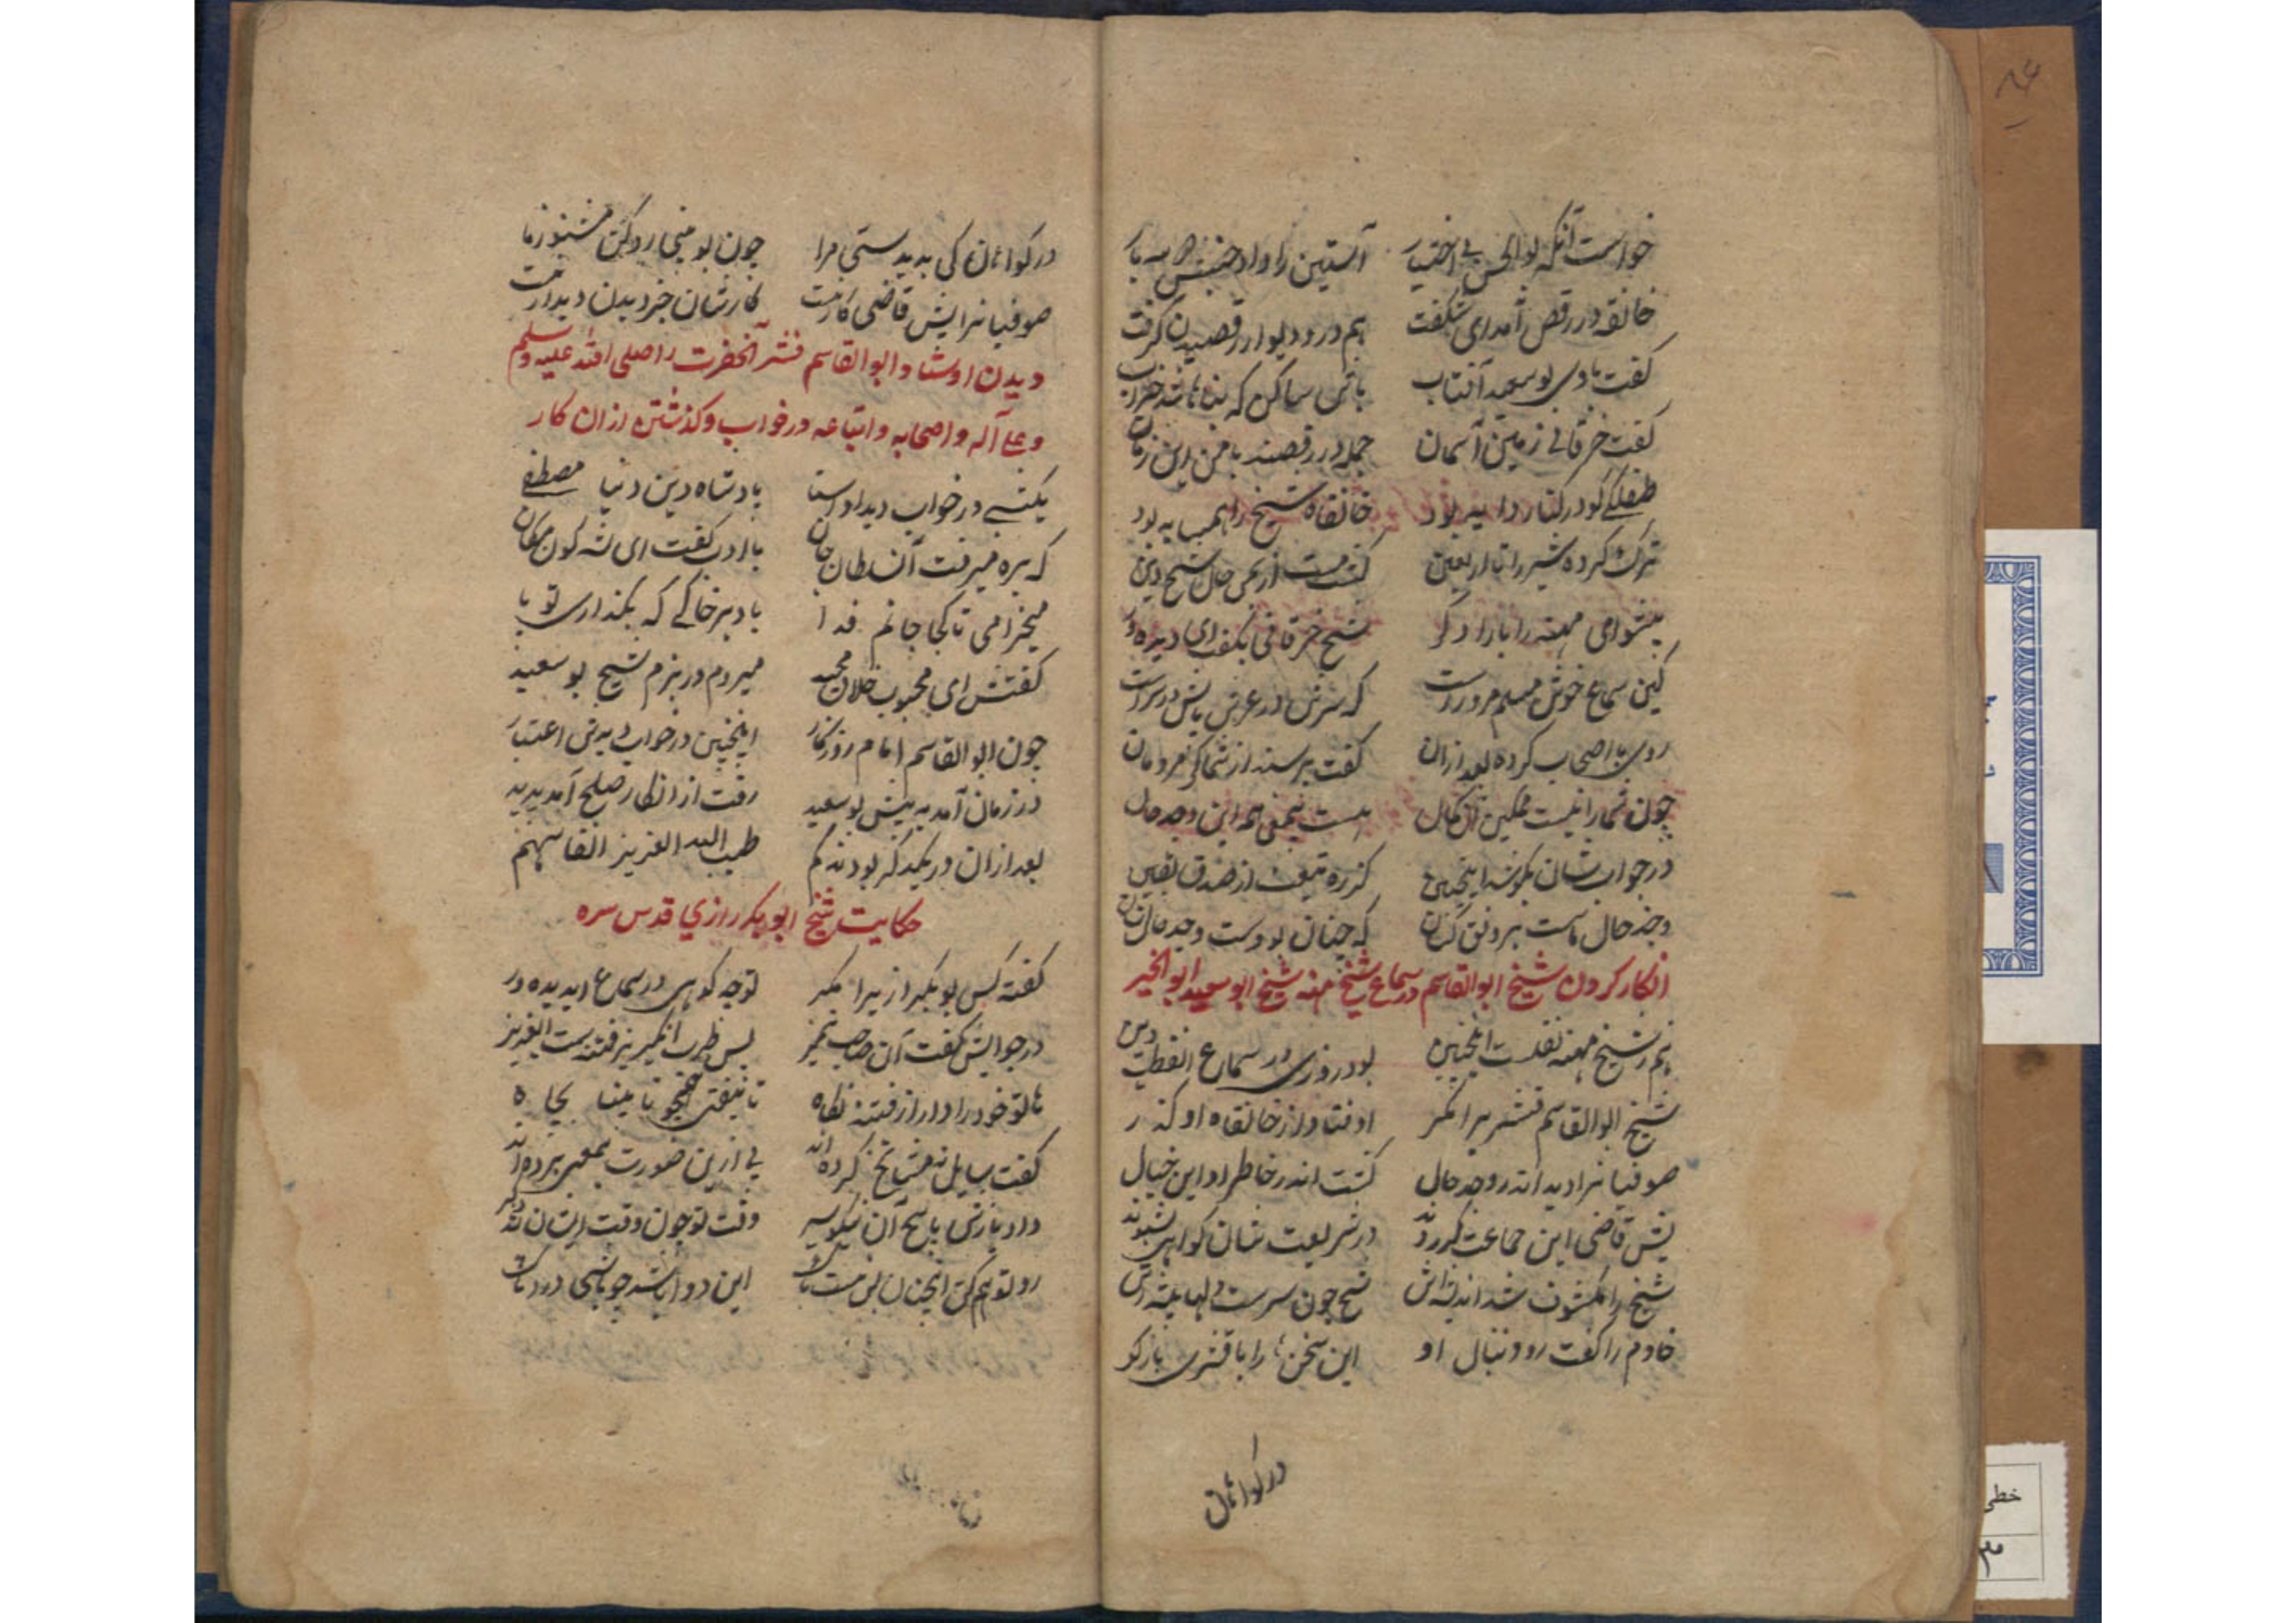 خواست آنکه بوالحسن بی اختیار آستین را داد جنبش سه بار
خانقه در رقص آمد ای شگفت هم در و دیوار رقصیدن گرفت
گفت بادی بوسعید آفتاب باش ساکن که بناها شد خراب
گفت خرقانی زمین آسمان جمله در رقصند با من این زمان
طفلکی کو در کنار دایه بود خانقاه شیخ را همسایه بود
ترک کرده شیر را تا اربعین گشت مست از حال شیخ دین
مهنه را بار دگر شیخ خرقانی بگفت ای دیده ور
کین سماع خوش مسلم مر وراست که سرش در عرش پایش در سراست
روی با اصحاب کرده بعد ازان گفت پرسند از شما گر مردمان
چون شما را نیست ممکین آن کمال هست همه این وجد حال
در جواب شان بکوشد اینچنین کز ره تحقیق از صدق یقین
وجد حال ماست بر رونق کنان که چنان بودست وجد حال شان
انکار کردن شیخ ابوالقاسم در سماع شیخ مهنه شیخ ابوسعید ابوالخیر
هم ز شیخ مهنه نقلست اینچنین بود روزی در سماع آن قطب دین
شیخ ابوالقاسم قشیر برا مگر اوفتاد از خانقاه او گذر
صوفیانرا دید اندر وجد حال گشت اندر خاطر او این خیال
پیش قاضی این جماعت گر روند در شریعت شان گواهی نشنوند
شیخ را مکشوف شد اندیشه اش شیخ چون
خادم را گفت رو دنبال او این سخن را با قشیری باز گو
در گواهان
در گواهان کی بدیدستی مرا چون بو
صوفیانرا پیش قاضی کار نیست کارشان جز دیدن دیدار نیست
دیدن اوستاد ابوالقاسم قشر آنحضرت را صلی الله علیه وسلم
و علی آله و اصحابه و اتباعه در خواب و گذشتن از ان کار
یکشبی در خواب دید اوستا پادشاه دین دنیا مصطفی
که بره میرفت آن سلطان جان با ادب گفت ای شه کون مکان
میخرامی تا کجا جانم فدا باد بر خاکی که بگذاری تو پا
گفتش ای محبوب خلاق مجید میروم در بزم شیخ بوسعید
چون ابوالقاسم امام روزگار اینچنین در خواب دیدش اعتبار
در زمان آمد به پیش بوسعید رفت از انکار صلح آمد پدید
بعد ازان در یکدگر بودند گم طیب الله العزیز انفاسهم
حکایت شیخ ابوبکر رازی قدس سره
گفته کس بوبکر رازیرا مگر تو چه گوی در سماع ای دیده ور
در جوابش گفت آن صاحب تمیز بس طرب انگیز پر فتنه ست ای عزیز
ها تو خود را دار از فتنه نگاه تا نیفتی تا بجاه
گفت سایل نه مشایخ کرده اند پی ازین صورت بمعنی برده اند
داد بازش پاسخ آن نیکو سیر وقت تو چون وقت ایشان شد دگر
رو تو هم کن آنچنان لیکن مست باش این دوا باشد چو باشی درد باش